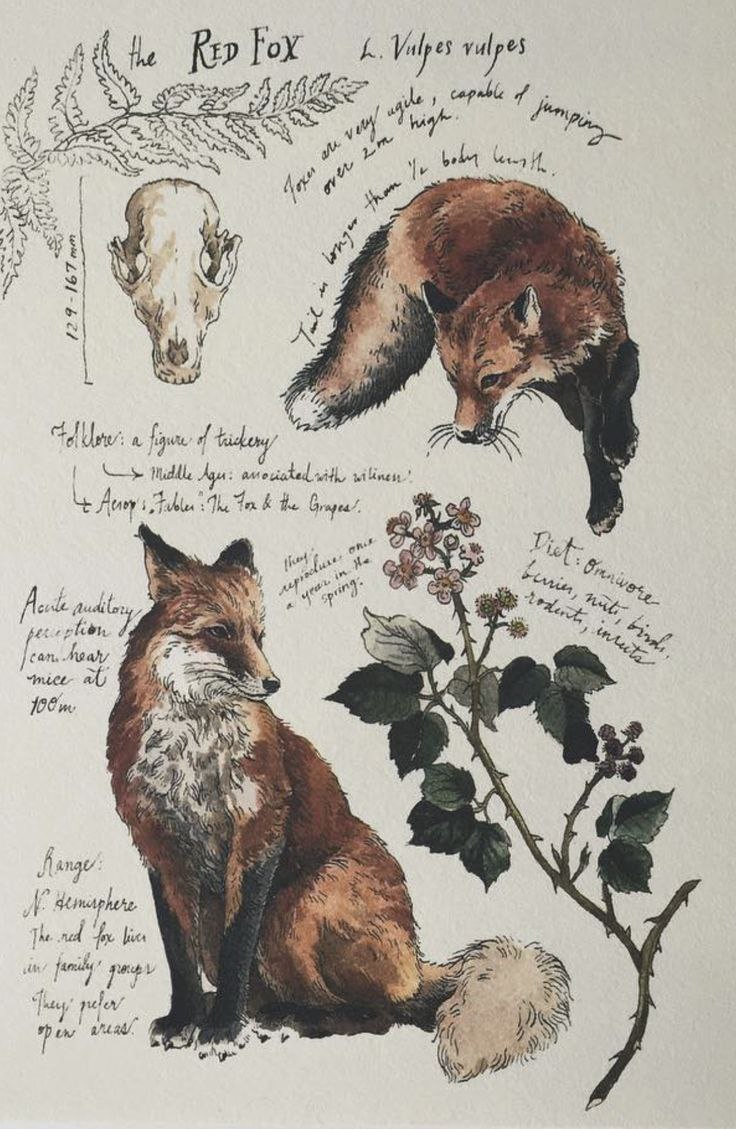 the RED FOX L. Vulpes vulpes
Foxes are very agile, capable of jumping
over 2m high.
Tail is longer than 1/2 body length.
129-167 mm
Folklore: a figure of trickery
Middle Ages: associated with wiliness.
Aesop's "Fables": The Fox & the Grapes.
they
reproduce once
a year in the
spring.
Diet: Omnivore
berries, nuts, birds,
rodents, insects
Acute auditory
perception
can hear
mice at
100m
Range:
N. Hemisphere
The red fox lives
in family groups
They prefer
open areas.